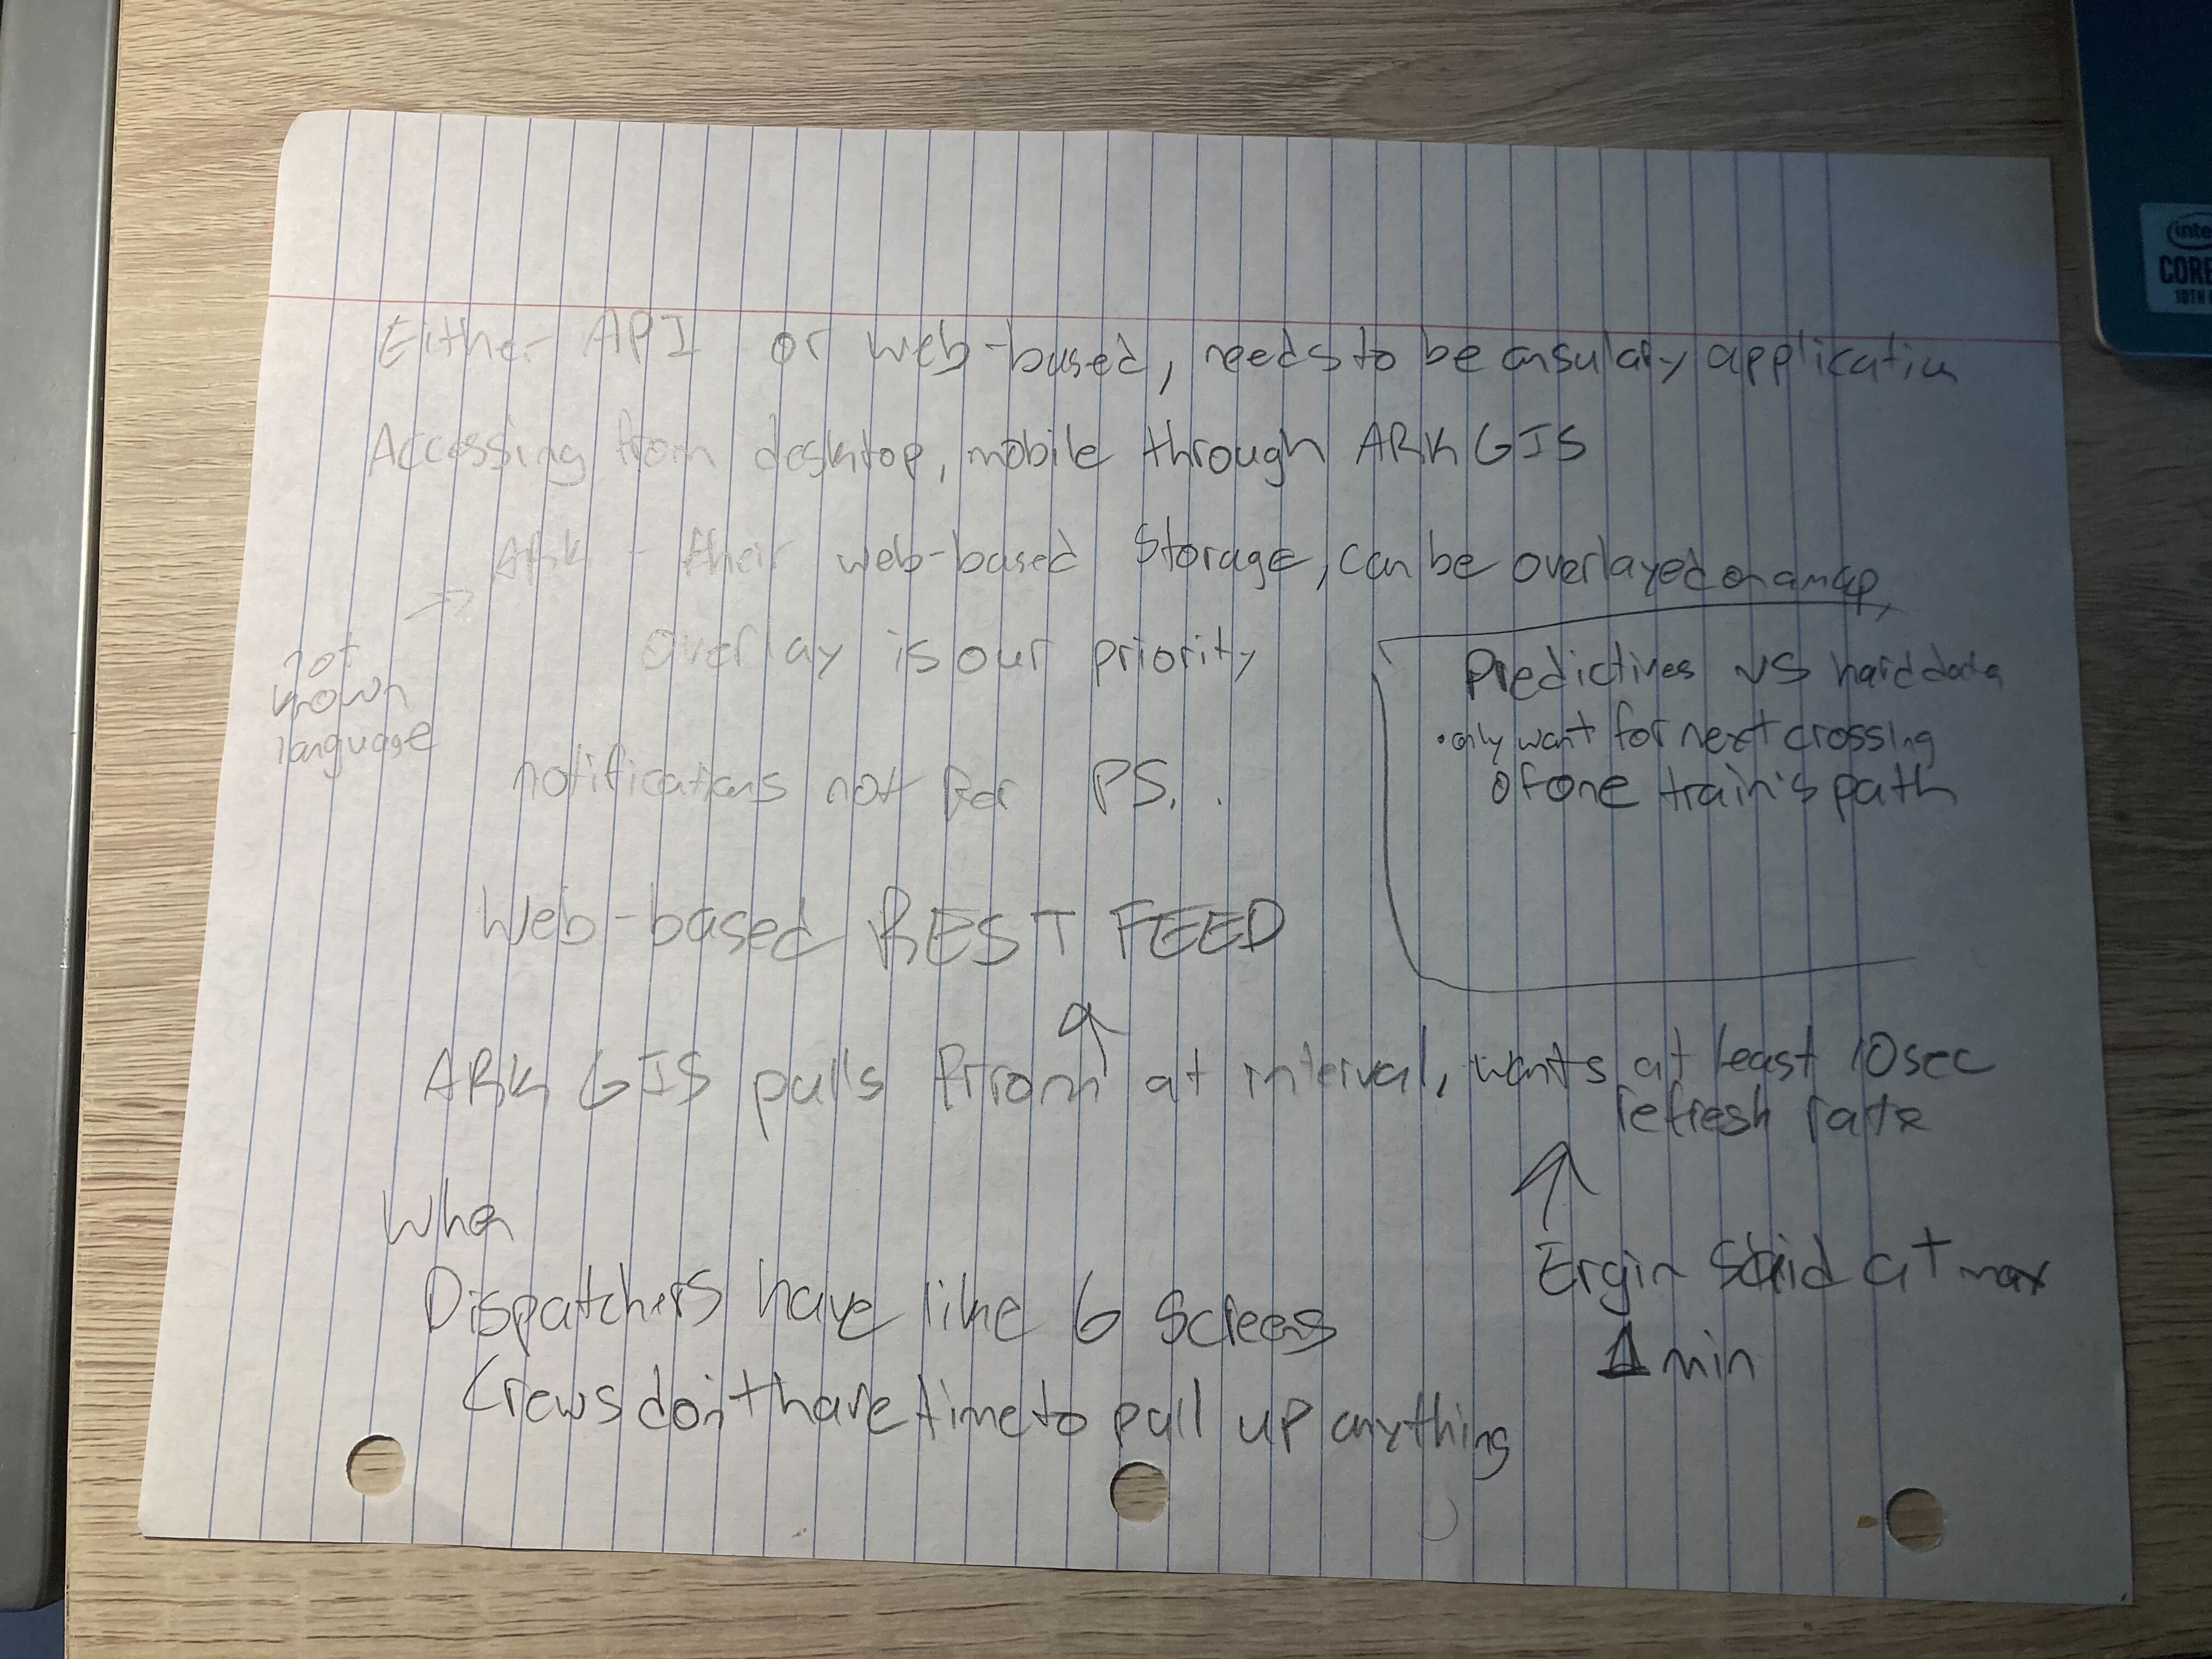 Either API or web-based, needs to be ansulary application
Accessing from desktop, mobile through ARK GIS
ARK - their web-based storage, can be overlayed on a map,
not
known
language
→
overlay is our priority
notifications not for PS. .
Predictives vs hard data
• only want for next crossing
of one train's path
Web-based REST FEED
ARK GIS pulls from at interval, wants at least 10 sec
refresh rate
Ergin said at max
1 min
When
Dispatchers have like 6 screens
Crews don't have time to pull up anything
CORE
10TH